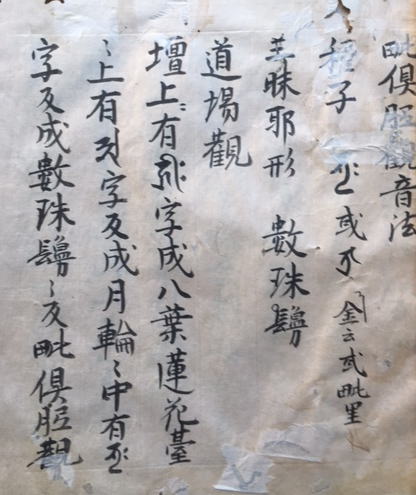 毗倶胝觀音法
種子 或 金云或毗里
三昧耶形 數珠鬘
道場觀
壇上〻有字成八葉蓮花臺
〻上有字反成月輪〻中有
字反成數珠鬘〻反毗倶胝觀